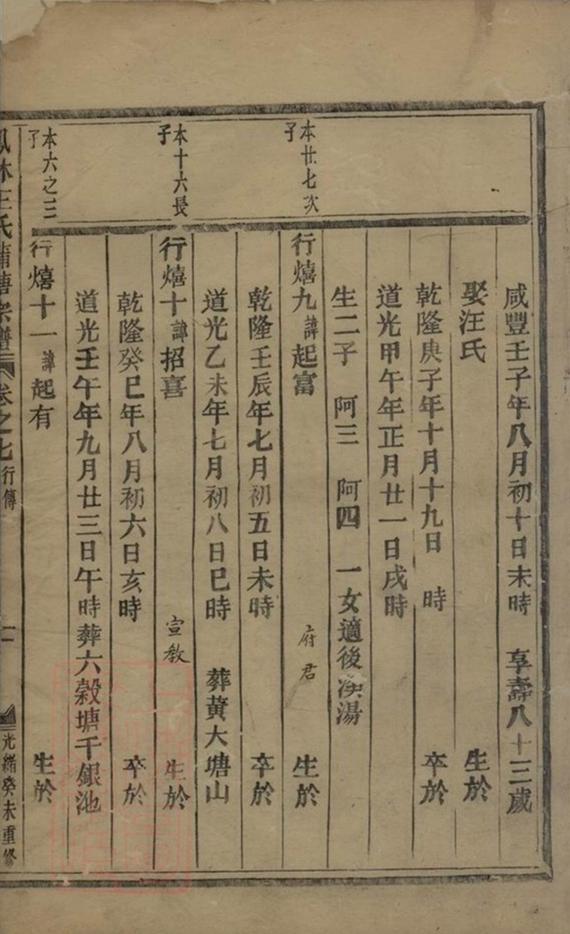 咸豐壬子年八月初十日未時 享壽八十三歲
娶汪氏 生於
乾隆庚子年十月十九日 時 卒於
道光甲午年正月廿一日戌時
生二子 阿三 阿四 一女適後 湯
本廿七次子
行熺九諱起富 府君 生於
乾隆壬辰年七月初五日未時 卒於
道光乙未年七月初八日巳時 葬黃大塘山
本十六長子
行熺十諱招喜 宣教 生於
乾隆癸巳年八月初六日亥時 卒於
道光壬午年九月廿三日午時葬六穀塘千銀池
本六之三子
行熺十一諱起有 生於
林王氏蒲塘宗譜 卷之七 行傳 光緒癸未重修